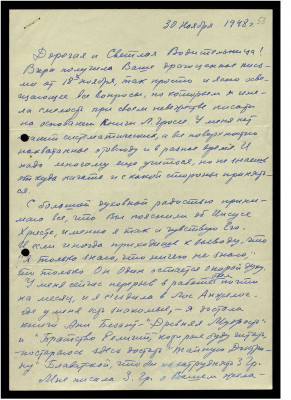 30 Ноября 1948 г.
Дорогая и Светлая Водительница!
Вчера получила Ваше драгоценное пись-
мо от 18го ноября, так просто и ясно осве-
щающее все вопросы, по которым я име-
ла смелость при своем невежестве писать
на основании книги Л. Гроссе. У меня нет
знаний систематических, а все поверхностно
нахватанное отовсюду и в разное время. И
надо многому еще учиться, но не знаешь
откуда начать и с какой стороны
С большой духовной радостью прини-
маю все, что Вы пояснили об Иисусе
Христе, именно я так и чувствую Его.
иногда приходишь к выводу, что
"Я только знаю, что ничего не знаю,"
только Он Один остается опорой духу.
У меня сейчас перерыв в работе почти
на месяц, и я съездила в Лос Анжелос,
где у меня есть знакомые, — я достала
книги Анни Безант — "Древняя Мудрость"
и "Братство Религий", которые буду читать,
постараюсь здесь достать "Тайную Доктри-
ну" Блаватской, чтобы не затруднять З. Гр.
Мне писала З. Гр. о Вашем жела-